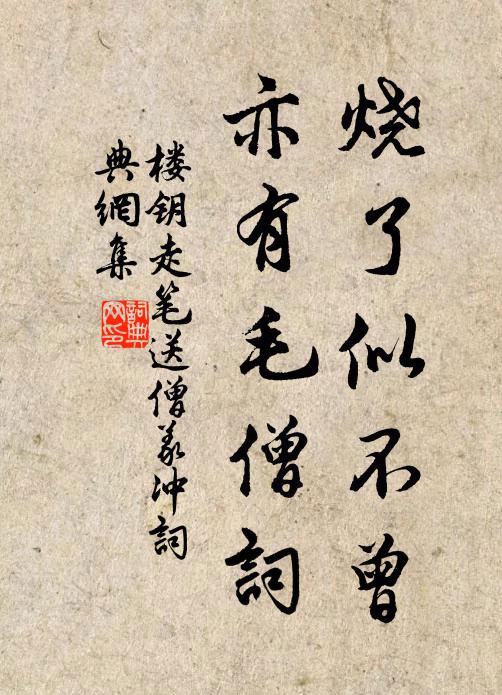 烧了似不曾
亦有毛僧詞
楼钥走笔送僧义冲詞
典網集
詞典
网印